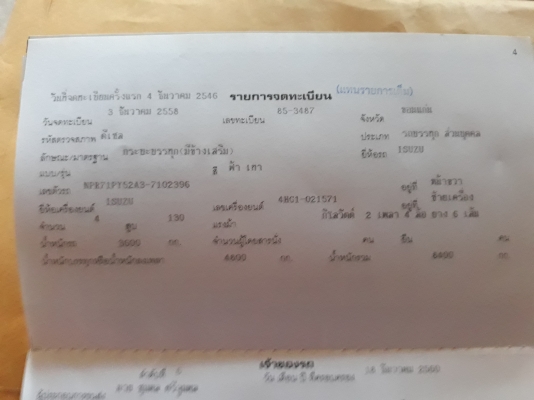 4
วันที่จดทะเบียนครั้งแรก 4 ธันวาคม 2546 รายการจดทะเบียน (แทนรายการเดิม)
วันจดทะเบียน 3 ธันวาคม 2558 เลขทะเบียน 85-3467 จังหวัด ขอนแก่น
ดีเซล ประเภท รถบรรทุก ส่วนบุคคล
ลักษณะ/มาตรฐาน กระบะบรรทุก(มีข้างเสริม) ยี่ห้อรถ ISUZU
แบบ/รุ่น สี ฟ้า เทา
เลขตัวรถ NPR71PY52A3-7102396 อยู่ที่ หน้าขวา
ยี่ห้อเครื่องยนต์ ISUZU เลขเครื่องยนต์ 4801-021571 อยู่ที่ ซ้ายเครื่อง
จำนวน 4 สูบ 130 แรงม้า กิโลวัตต์ 2 เพลา 4 ล้อ ยาง 6 เส้น
น้ำหนักรถ 3600 กก. จำนวนผู้โดยสารนั่ง คน ยืน คน
น้ำหนักบรรทุกหรือน้ำหนักลงเพลา 4800 กก. น้ำหนักรวม 8400 กก.
เจ้าของรถ
วัน เดือน ปี ที่ครอบครอง ธันวาคม